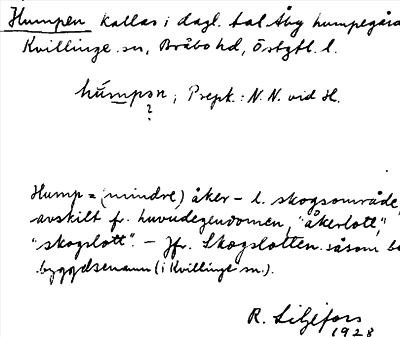 Humpen kallas i dagl. tal Åby humpegård
Kvillinge sn, Bråbo hd, Östgtl. l.
húmpən; Prepk.: N.N. vid H.
?
Hump = (mindre) åker- l. skogsområde,
avskilt fr. huvudegendomen, "åkerlott",
"skogslott". - Jfr. Skogslotten såsom be
byggelsenamn (i Kvillinge sn.).
R. Liljefors
1928